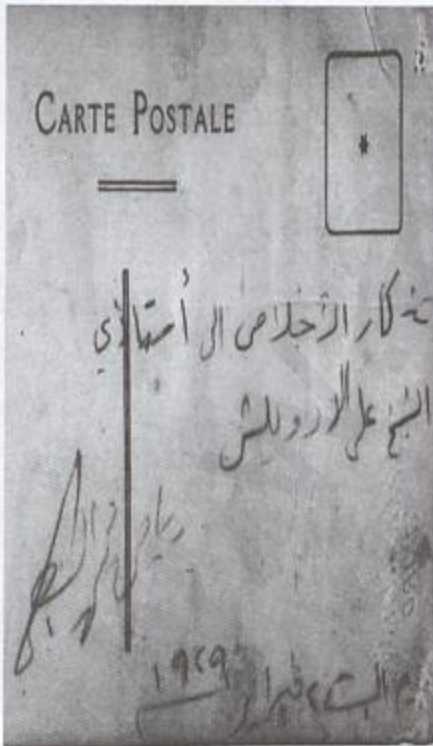 CARTE POSTALE
تذكار الأخلاص الى أستاذي
الشيخ علي الدرويش
رياض
السبت ٢ فبراير ١٩٢٩